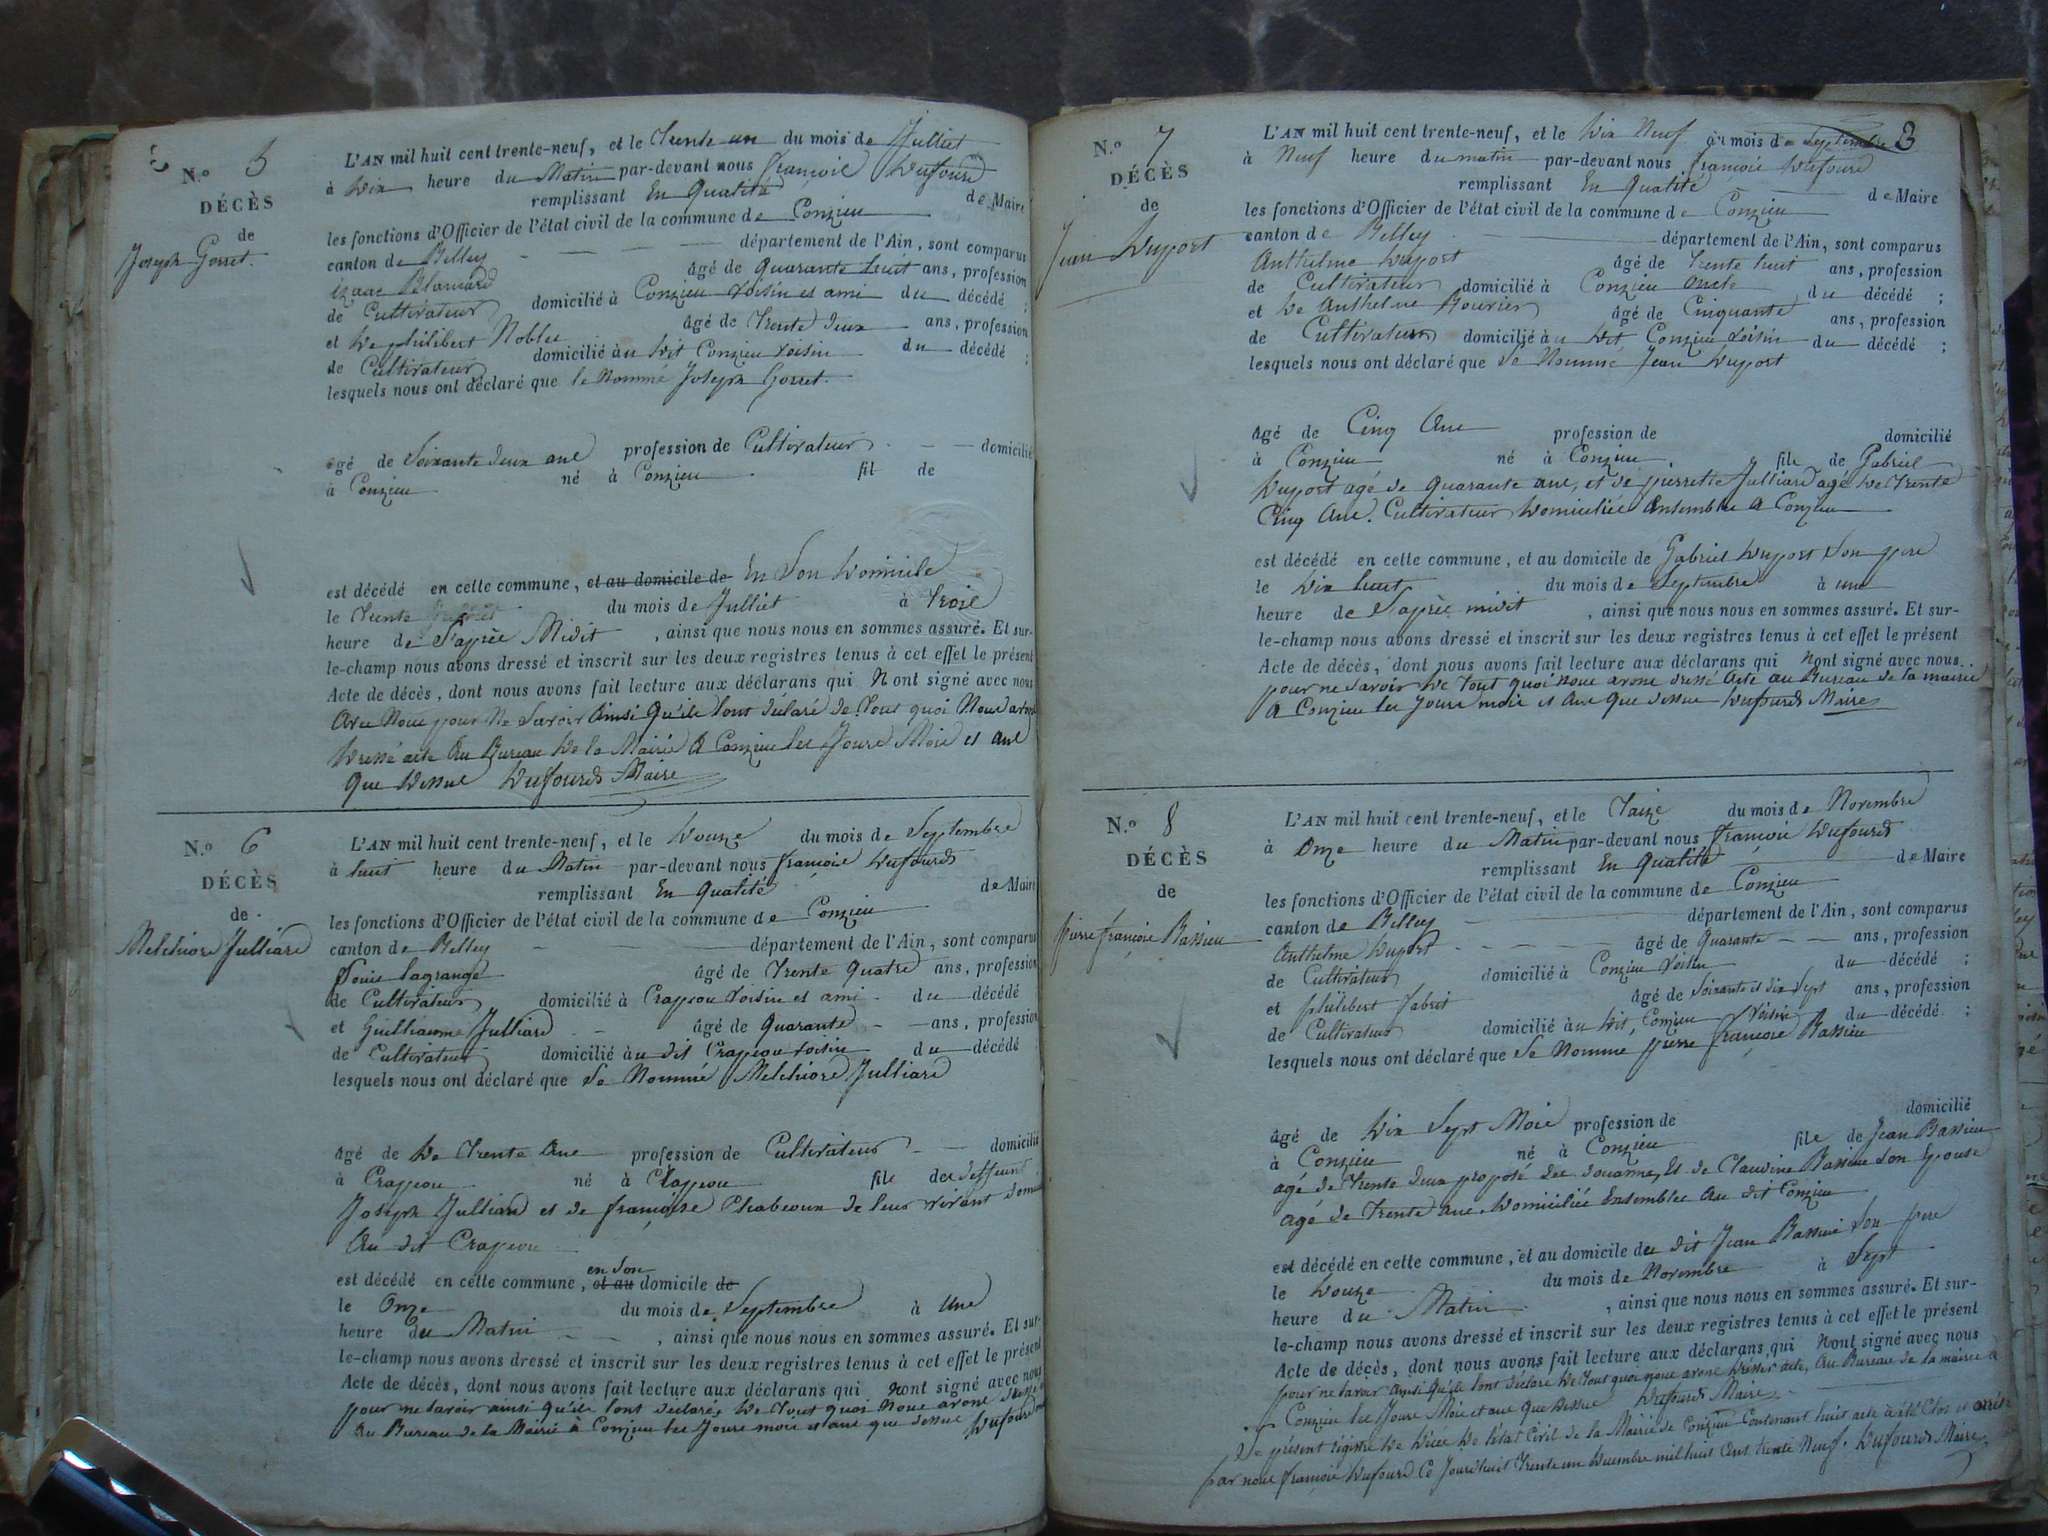 N.º 5
DÉCÈS
de
Joseph Gorret.
L'AN mil huit cent trente-neuf, et le Trente un du mois de Julliet
à Dix heure du Matin par-devant nous françois Dufourd
remplissant En Qualité de Maire
les fonctions d'Officier de l'état civil de la commune de Conzieu
canton de Belley département de l'Ain, sont comparus
Izaac Blanchard âgé de Quarante huit ans, profession
de Cultivateur domicilié à Conzieu Voisin et ami du décédé ;
et De philibert Noblet âgé de Trente Deux ans, profession
de Cultivateur domicilié àu Dit Conzieu Voisin du décédé ;
lesquels nous ont déclaré que le Nommé Joseph Gorret.
âgé de Soixante deux ans profession de Cultivateur domicilié
à Conzieu né à Conzieu fil de
est décédé en cette commune, et au domicile de En Son Domicile
le Trente du mois de Julliet à Trois
heure de L'après Midit, ainsi que nous nous en sommes assuré. Et sur-
le-champ nous avons dressé et inscrit sur les deux registres tenus à cet effet le présent
Acte de décès, dont nous avons fait lecture aux déclarans qui N ont signé avec nous
Avec Nous pour Ne Savoir Ainsi Qu'ils L'ont declaré De Tout quoi Nous avons
Dressé acte Au Bureau De la Mairie A Conzieu les Jours Mois et ans
Que Dessus Dufourd Maire
N.º 6
DÉCÈS
de
Melchiore Julliard
L'AN mil huit cent trente-neuf, et le Douze du mois de Septembre
à huit heure du Matin par-devant nous françois Dufourd
remplissant En Qualité de Maire
les fonctions d'Officier de l'état civil de la commune de Conzieu
canton de Belley département de l'Ain, sont comparus
Louis lagrange âgé de Trente Quatre ans, profession
de Cultivateur domicilié à Crappeou Voisin et ami du décédé
et Guilliaume Julliard âgé de Quarante ans, profession
de Cultivateur domicilié àu dit Crappeou voisin du décédé
lesquels nous ont déclaré que Le Nommé Melchiore Julliard
âgé de De Trente Ans profession de Cultivateur domicilié
à Crappeou né à Crappeou fils des deffunt
Joseph Julliard et de françoise Chabeoux de leur vivant
Au dit Crappeou
en Son
est décédé en cette commune, et au domicile de
le Onze du mois de Septembre à Une
heure du Matin, ainsi que nous nous en sommes assuré. Et sur-
le-champ nous avons dressé et inscrit sur les deux registres tenus à cet effet le présent
Acte de décès, dont nous avons fait lecture aux déclarans qui N ont signé avec nous
pour ne savoir ainsi qu'ils L'ont declarés De Tout quoi Nous avons dressé
Au Bureau de la Mairie à Conzieu les Jours mois et ans que dessus Dufourd
N.º 7
DÉCÈS
de
Jean Duport
3
L'AN mil huit cent trente-neuf, et le Dix Neuf du mois de Septembre
à Neuf heure du matin par-devant nous françois Dufourd
remplissant En Qualité de Maire
les fonctions d'Officier de l'état civil de la commune de Conzieu
canton de Belley département de l'Ain, sont comparus
Anthelme Duport âgé de Trente huit ans, profession
de Cultivateur domicilié à Conzieu oncle du décédé ;
et De Anthelme Bouvier âgé de Cinquante ans, profession
de Cultivateur domicilié àu Dit Conzieu Voisin du décédé ;
lesquels nous ont déclaré que Le Nommé Jean Duport
âgé de Cinq Ans profession de domicilié
à Conzieu né à Conzieu, fils de Gabriel
Duport agé de Quarante ans, et de pierrette Julliard agé De Trente
Cinq Ans. Cultivateur Domiciliés Ensembles A Conzieu
est décédé en cette commune, et au domicile de Gabriel Duport Son pere
le Dix huit du mois de Septembre à une
heure de L'après midit, ainsi que nous nous en sommes assuré. Et sur-
le-champ nous avons dressé et inscrit sur les deux registres tenus à cet effet le présent
Acte de décès, dont nous avons fait lecture aux déclarans qui N ont signé avec nous.
pour ne Savoir De Tout quoi nous avons dressé Acte au Bureau de la mairie
A Conzieu les Jours mois et Ans Que dessus Dufourd Maire
N.º 8
DÉCÈS
de
Pierre françois Bassieu
L'AN mil huit cent trente-neuf, et le Traize du mois de Novembre
à Onze heure du Matin par-devant nous françois Dufourd
remplissant En Qualité de Maire
les fonctions d'Officier de l'état civil de la commune de Conzieu
canton de Belley département de l'Ain, sont comparus
Anthelme Duport âgé de Quarante ans, profession
de Cultivateur domicilié à Conzieu Voisin du décédé ;
et philibert Jabret âgé de Soixante et dix Sept ans, profession
de Cultivateur domicilié àu Dit Conzieu Voisin du décédé ;
lesquels nous ont déclaré que Le Nommé pierre françois Bassieu
âgé de Dix Sept Mois profession de domicilié
à Conzieu né à Conzieu fils de Jean Bassieu
agé de Trente deux proposé des douannes, Et de Claudine Bassieu Son Epouse
agé de Trente ans. Domiciliés Ensembles Au dit Conzieu
est décédé en cette commune, et au domicile du dit Jean Bassieu Son pere
le Douze du mois de Novembre à Sept
heure du Matin, ainsi que nous nous en sommes assuré. Et sur-
le-champ nous avons dressé et inscrit sur les deux registres tenus à cet effet le présent
Acte de décès, dont nous avons fait lecture aux déclarans, qui N ont signé avec nous
pour ne savoir Ainsi Qu'ils L'ont déclaré De Tout quoi nous avons Dresser acte, Au Bureau de la mairie A
Conzieu les Jours Mois et ans Que Dessus Dufourd Maire
Le présent régistre De Décès De l'état Civil de la Mairie de Conzieu Contenant huit acte à été Clos et arrêté
par nous françois Dufourd Ce Jourd'huit Trente un Decembre mil huit Cent trente Neuf. Dufourd Maire